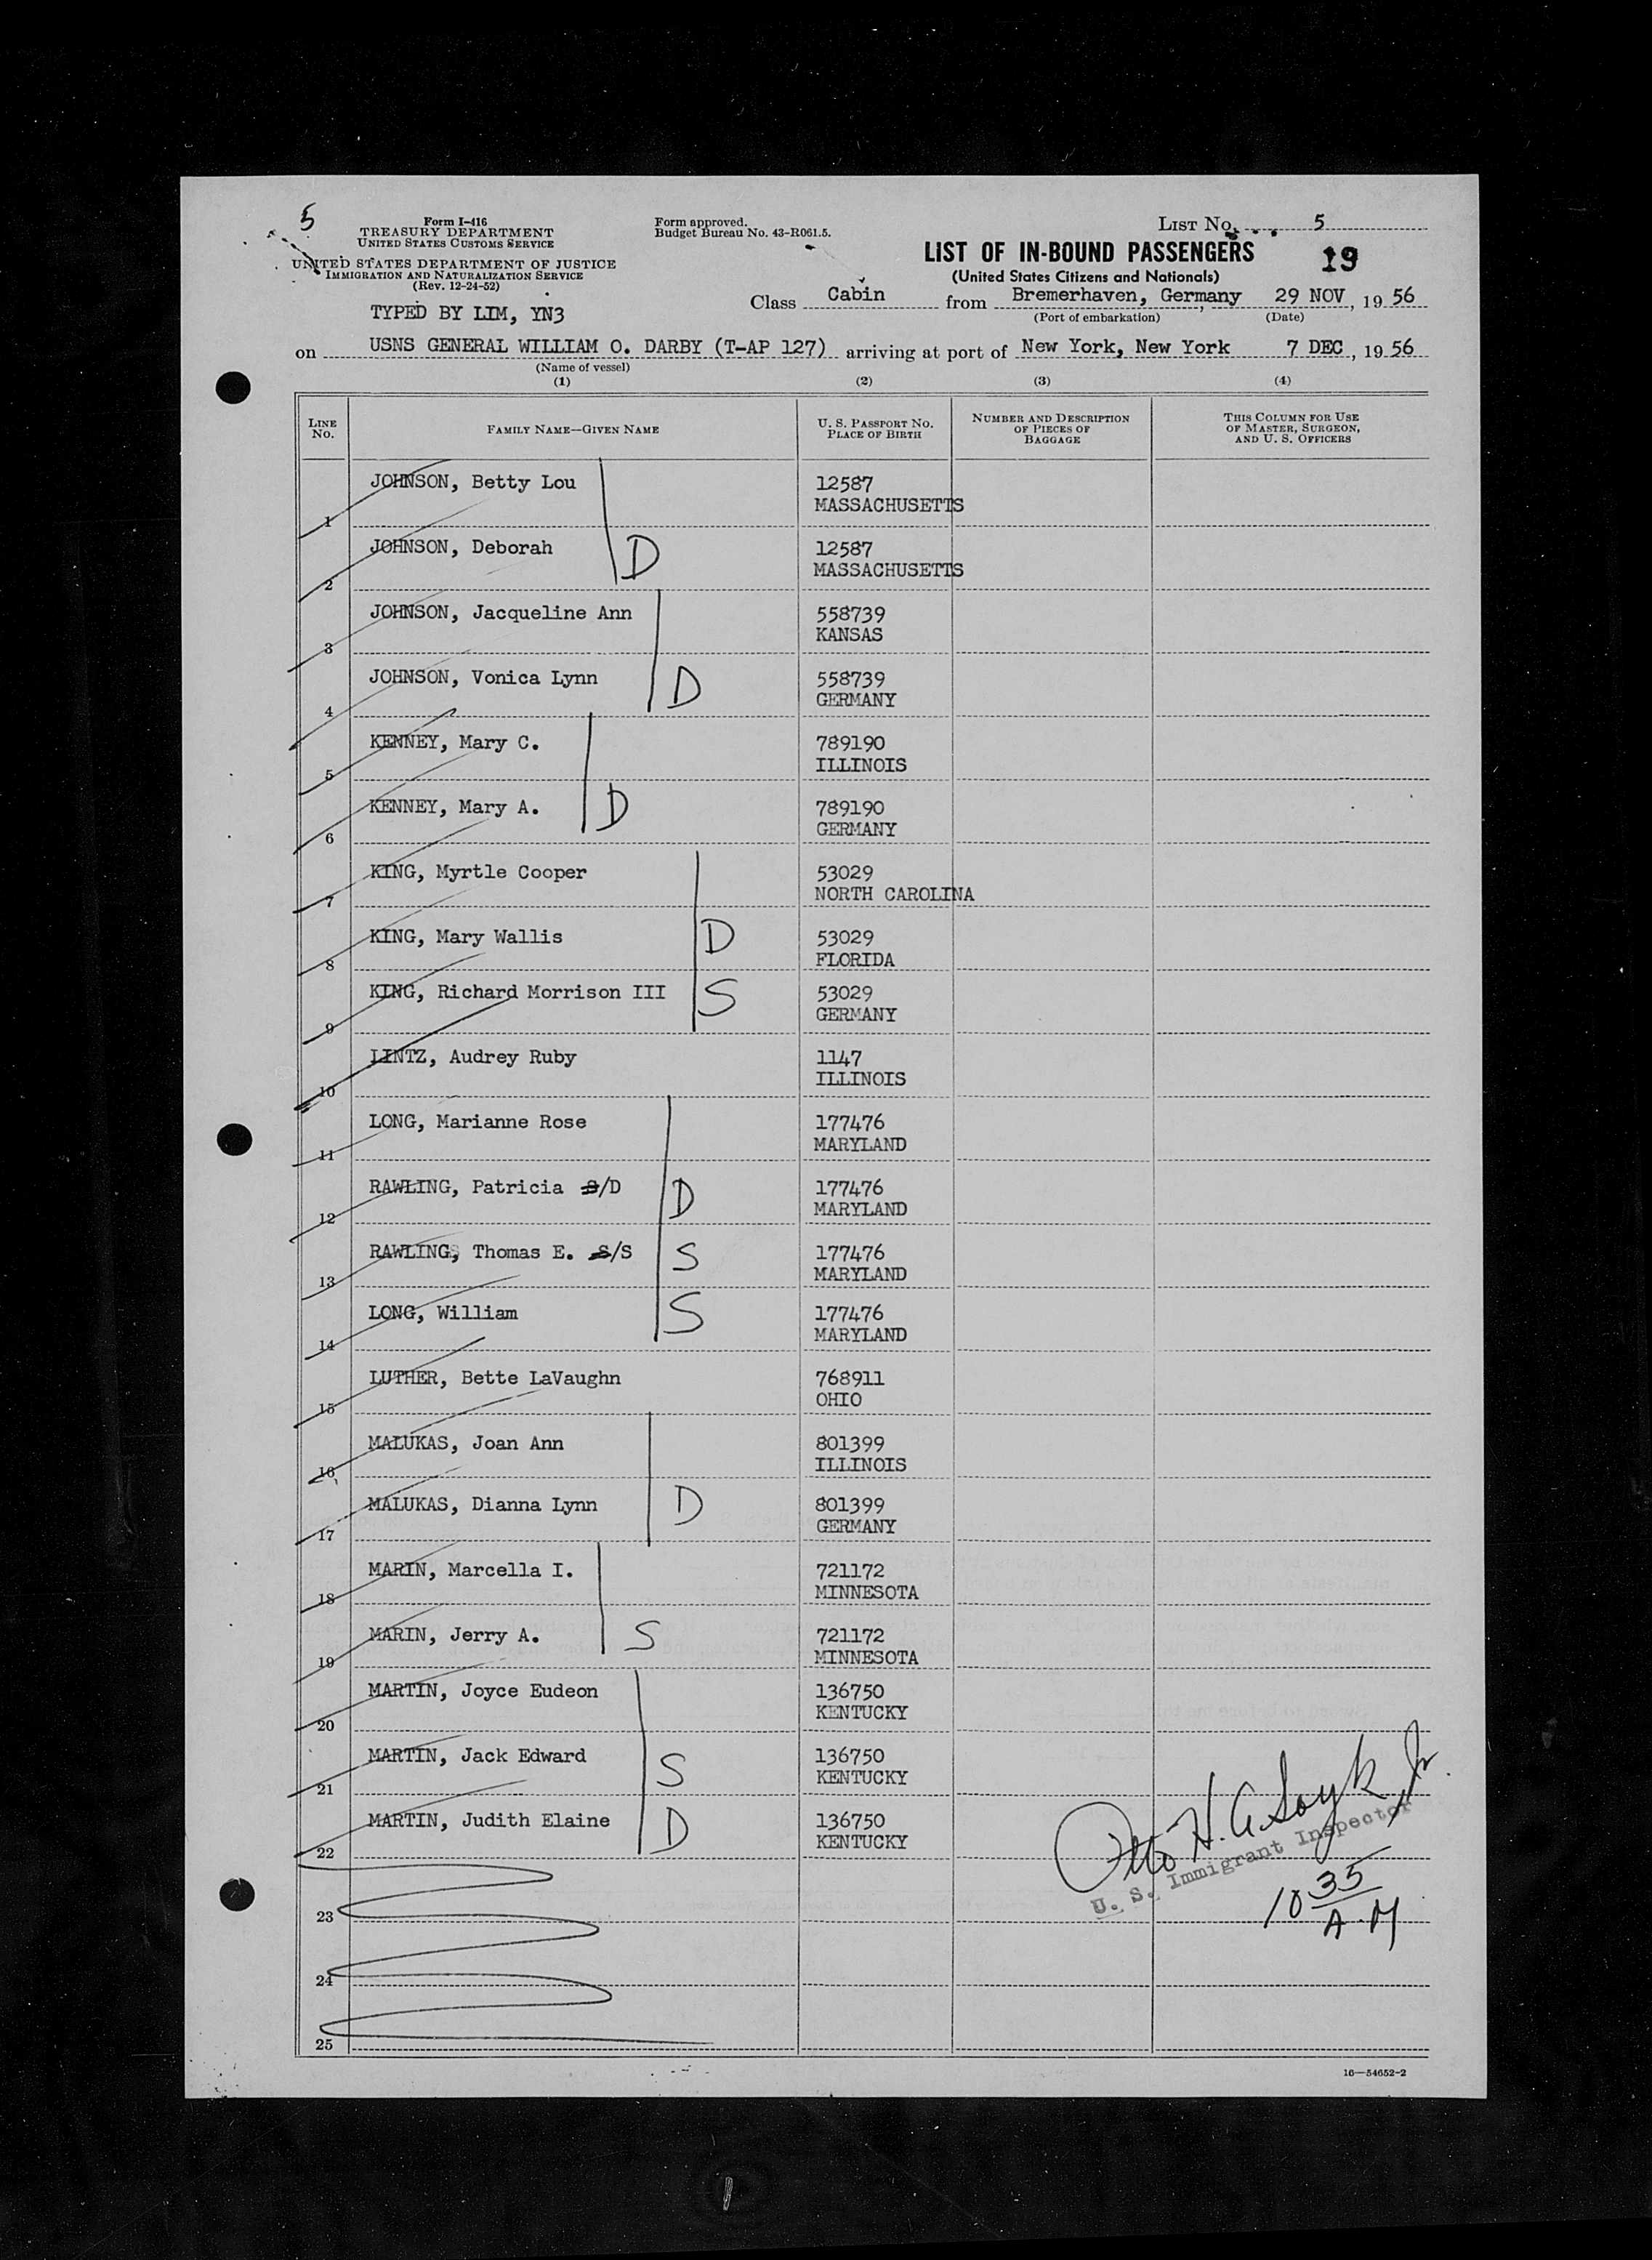 5
Form I-416
TREASURY DEPARTMENT
UNITED STATES CUSTOMS SERVICE
UNITED STATES DEPARTMENT OF JUSTICE
IMMIGRATION AND NATURALIZATION SERVICE
(Rev. 12-24-52)
TYPED BY LIM, YN3
Form approved.
Budget Bureau No. 43-R061.5.
LIST No. 5
LIST OF IN-BOUND PASSENGERS
19
(United States Citizens and Nationals)
Class Cabin from Bremerhaven, Germany, 29 NOV, 1956
(Port of embarkation) (Date)
on USNS GENERAL WILLIAM O. DARBY (T-AP 127) arriving at port of New York, New York 7 DEC, 1956
(Name of vessel)
(1) (2) (3) (4)
LINE No.
FAMILY NAME—GIVEN NAME
U. S. PASSPORT No. PLACE OF BIRTH
NUMBER AND DESCRIPTION OF PIECES OF BAGGAGE
THIS COLUMN FOR USE OF MASTER, SURGEON, AND U. S. OFFICERS
1 JOHNSON, Betty Lou 12587
MASSACHUSETTS
2 JOHNSON, Deborah D 12587
MASSACHUSETTS
3 JOHNSON, Jacqueline Ann 558739
KANSAS
4 JOHNSON, Vonica Lynn D 558739
GERMANY
5 KENNEY, Mary C. 789190
ILLINOIS
6 KENNEY, Mary A. D 789190
GERMANY
7 KING, Myrtle Cooper 53029
NORTH CAROLINA
8 KING, Mary Wallis D 53029
FLORIDA
9 KING, Richard Morrison III S 53029
GERMANY
10 LINTZ, Audrey Ruby 1147
ILLINOIS
11 LONG, Marianne Rose 177476
MARYLAND
12 RAWLING, Patricia S/D D 177476
MARYLAND
13 RAWLING, Thomas E. S/S S 177476
MARYLAND
14 LONG, William S 177476
MARYLAND
15 LUTHER, Bette LaVaughn 768911
OHIO
16 MALUKAS, Joan Ann 801399
ILLINOIS
17 MALUKAS, Dianna Lynn D 801399
GERMANY
18 MARIN, Marcella I. 721172
MINNESOTA
19 MARIN, Jerry A. S 721172
MINNESOTA
20 MARTIN, Joyce Eudeon 136750
KENTUCKY
21 MARTIN, Jack Edward S 136750
KENTUCKY
22 MARTIN, Judith Elaine D 136750
KENTUCKY
Otto H. A. Soyk Jr.
U. S. Immigrant Inspector
10 35
A.M
23
24
25
16—54652-2